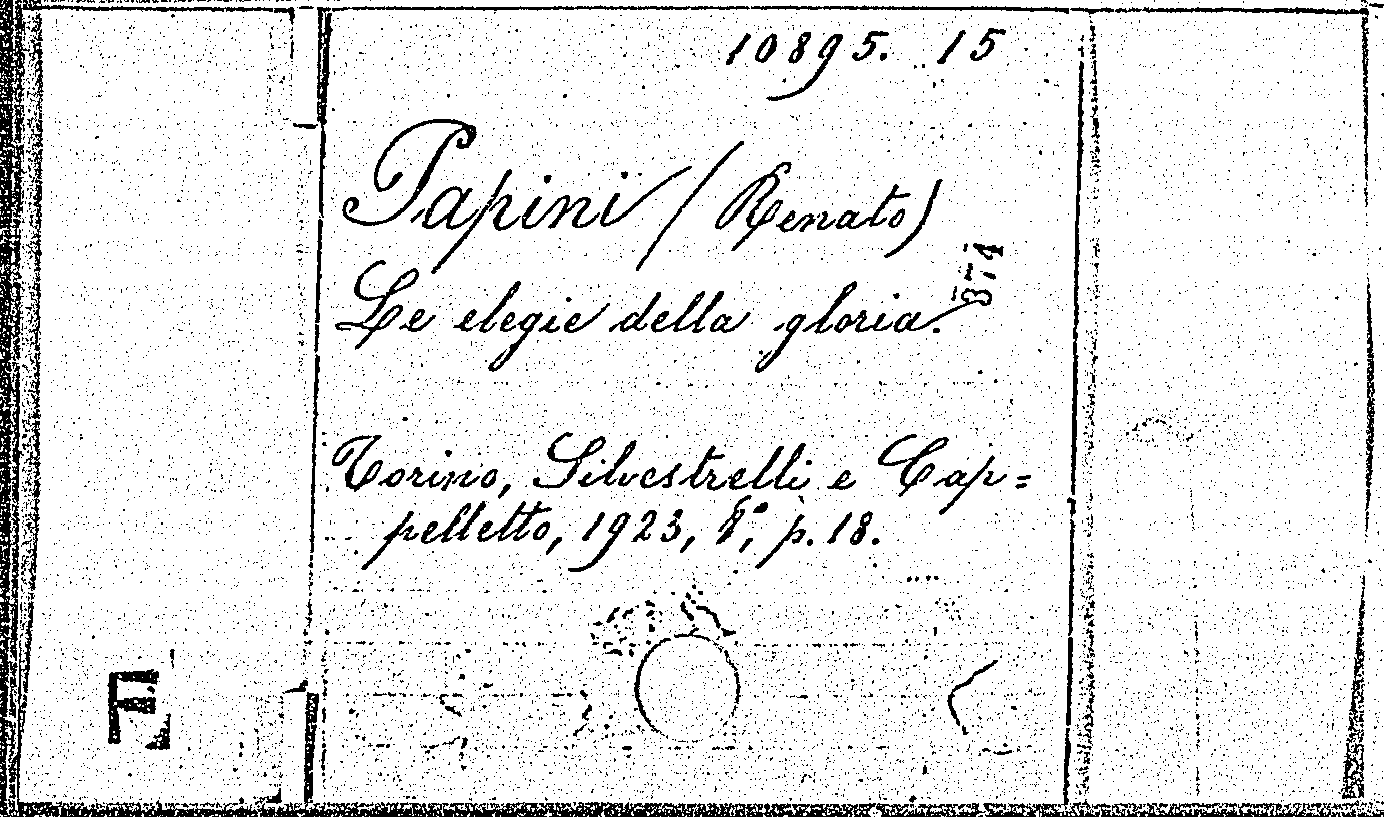 10895. 15
Papini (Renato)
874
Le elegie della gloria.
Torino, Silvestrelli e Cap=
pelletto, 1923, 8°, p. 18.